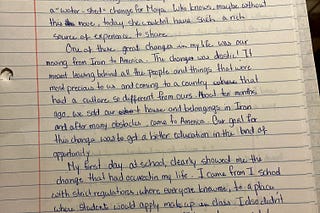 a "water-shed" change for Maya. Who knows, maybe without
this move, today she wouldn't have such a rich
source of experience to share.
One of these great changes in my life was our
moving from Iran to America. The changes was drastic! It
meant leaving behind all the people and things that were
most precious to us and coming to a country where that
had a culture so different from ours. About ten months
ago, we sold our house and belongings in Iran
and after many obstacles, came to America. Our goal for
this change was to get a better education in the land of
opportunity.
My first day at school, clearly showed me the
change that had occured in my life. I came from I school
with strict regulations where everyone knows me, to a place
where students would apply make up in class. I also didn't